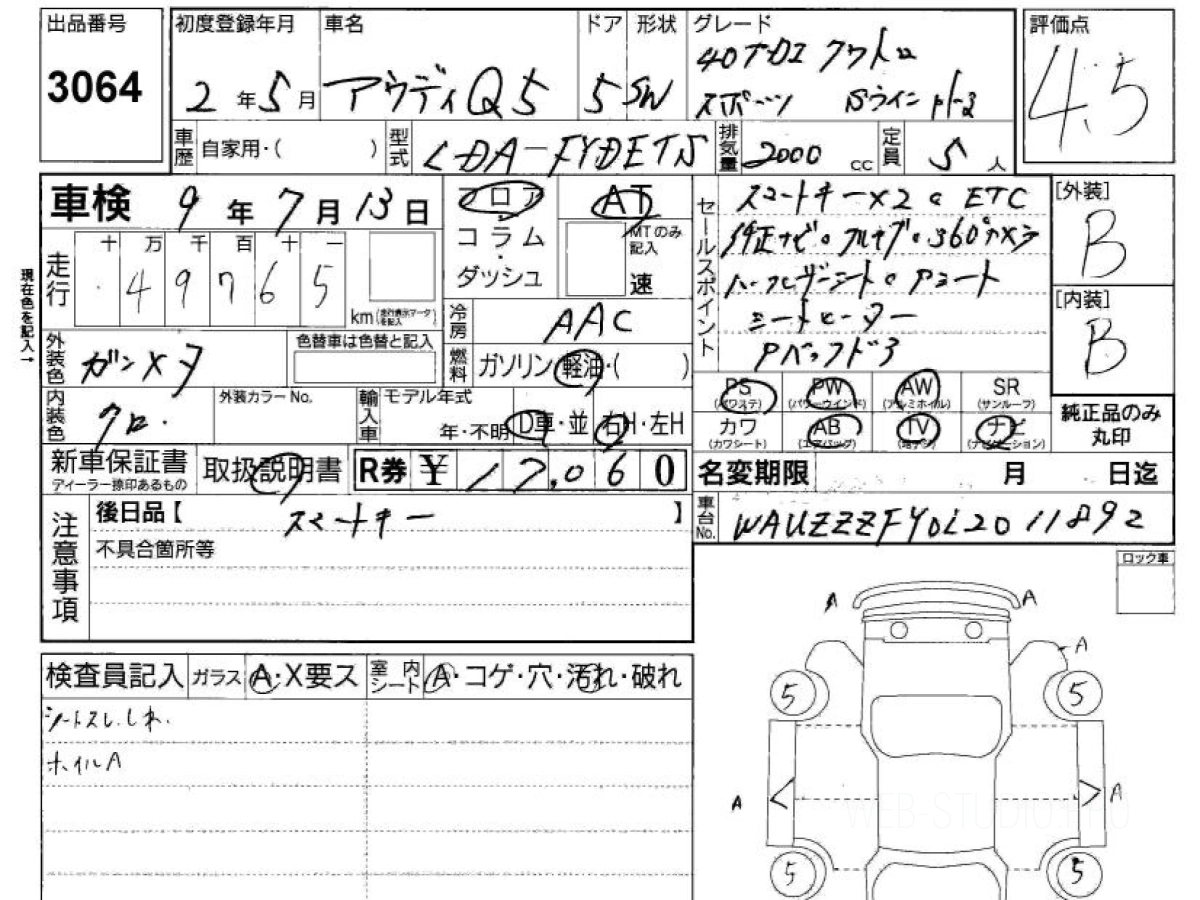 出品番号
3064
初度登録年月
2年5月
車名
アウディQ5
ドア
5
形状
SW
グレード
40TDI クワトロ
スポーツ Sライン
評価点
4.5
車歴
自家用・( )
型式
LDA-FYDETS
排気量
2000 cc
定員
5人
車検 9年7月13日
フロア
コラム
ダッシュ
AT
MTのみ記入
速
セールスポイント
スマートキー×2。ETC
純正ナビ。フルセグ。360°カメラ
ハーフレザーシート。Pシート
シートヒーター
Pバックドア
[外装]
B
[内装]
B
現在色を記入→
走行
十 万 千 百 十 一
49765
km
冷房
AAC
外装色
ガンメタ
色替車は色替と記入
燃料
ガソリン・軽油・( )
PS
(パワステ)
PW
(パワーウインド)
AW
(アルミホイル)
SR
(サンルーフ)
カワ
(カワシート)
AB
(エアバッグ)
TV
ナビ
(ナビゲーション)
純正品のみ
丸印
内装色
クロ.
外装カラーNo.
輸入車
モデル年式
年・不明
D車・並
右H・左H
新車保証書
ディーラー捺印あるもの
取扱説明書
R券 ¥17,060
名変期限 月 日迄
注意事項
後日品【 スマートキー 】
不具合箇所等
車台No.
WAUZZZFY0L2011892
ロック車
検査員記入
ガラス
A・X要ス
室内シート
A・コゲ・穴・汚れ・破れ
シートスレ.しわ.
ホイルA
A
A
A
5
5
A
A
5
5
WEB-STUDIO.PRO